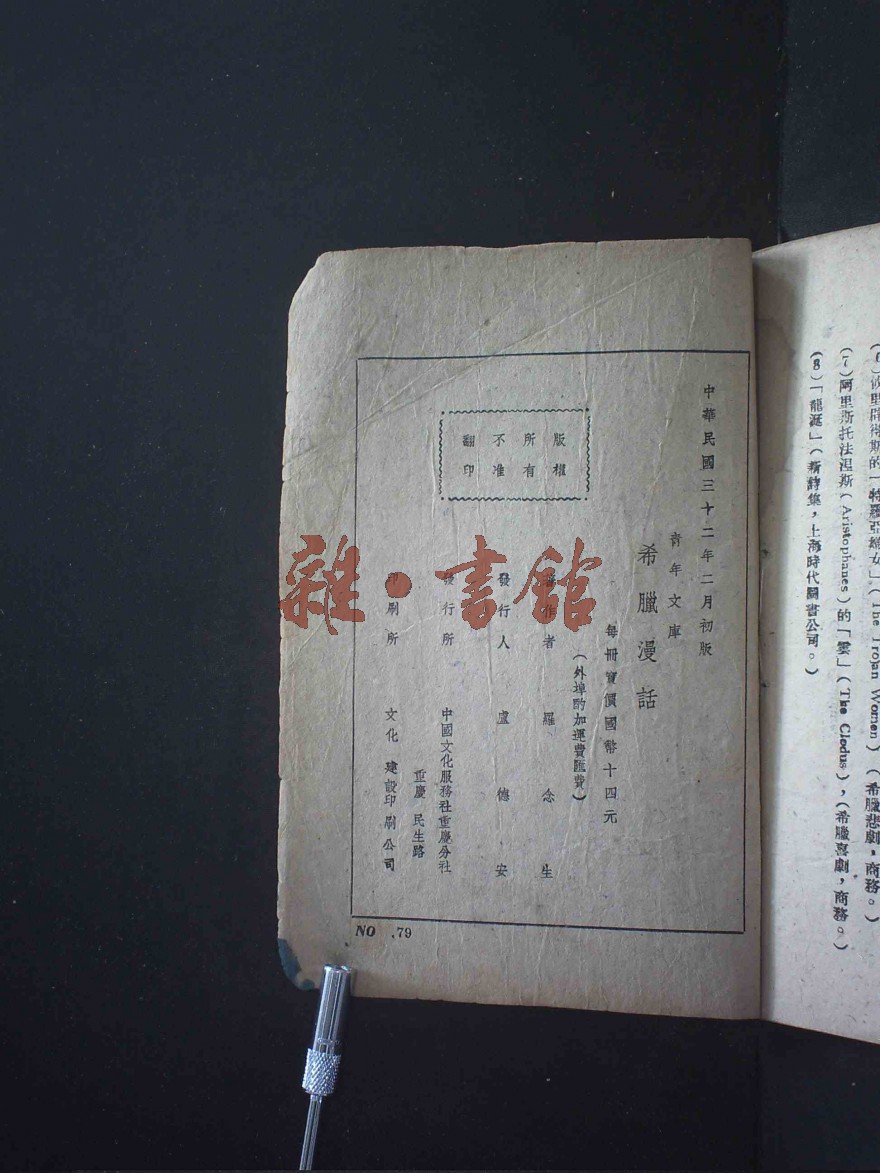 (6)
(The Trojan Women)(希臘悲劇,商務。)
(7)阿里斯托法涅斯(Aristophanes)的「雲」(The Clodus),(希臘喜劇,商務。)
(8)「龍涎」(新詩集,上海時代圖書公司。)
中華民國三十二年二月初版
青年文庫
希臘漫話
每冊實價國幣十四元
(外埠酌加運費匯費)
著作者 羅念生
發行人 盧德安
發行所 中國文化服務社重慶分社
重慶 民生路
印刷所 文化建設印刷公司
版權
所有
不准
翻印
NO .79
雜·書館